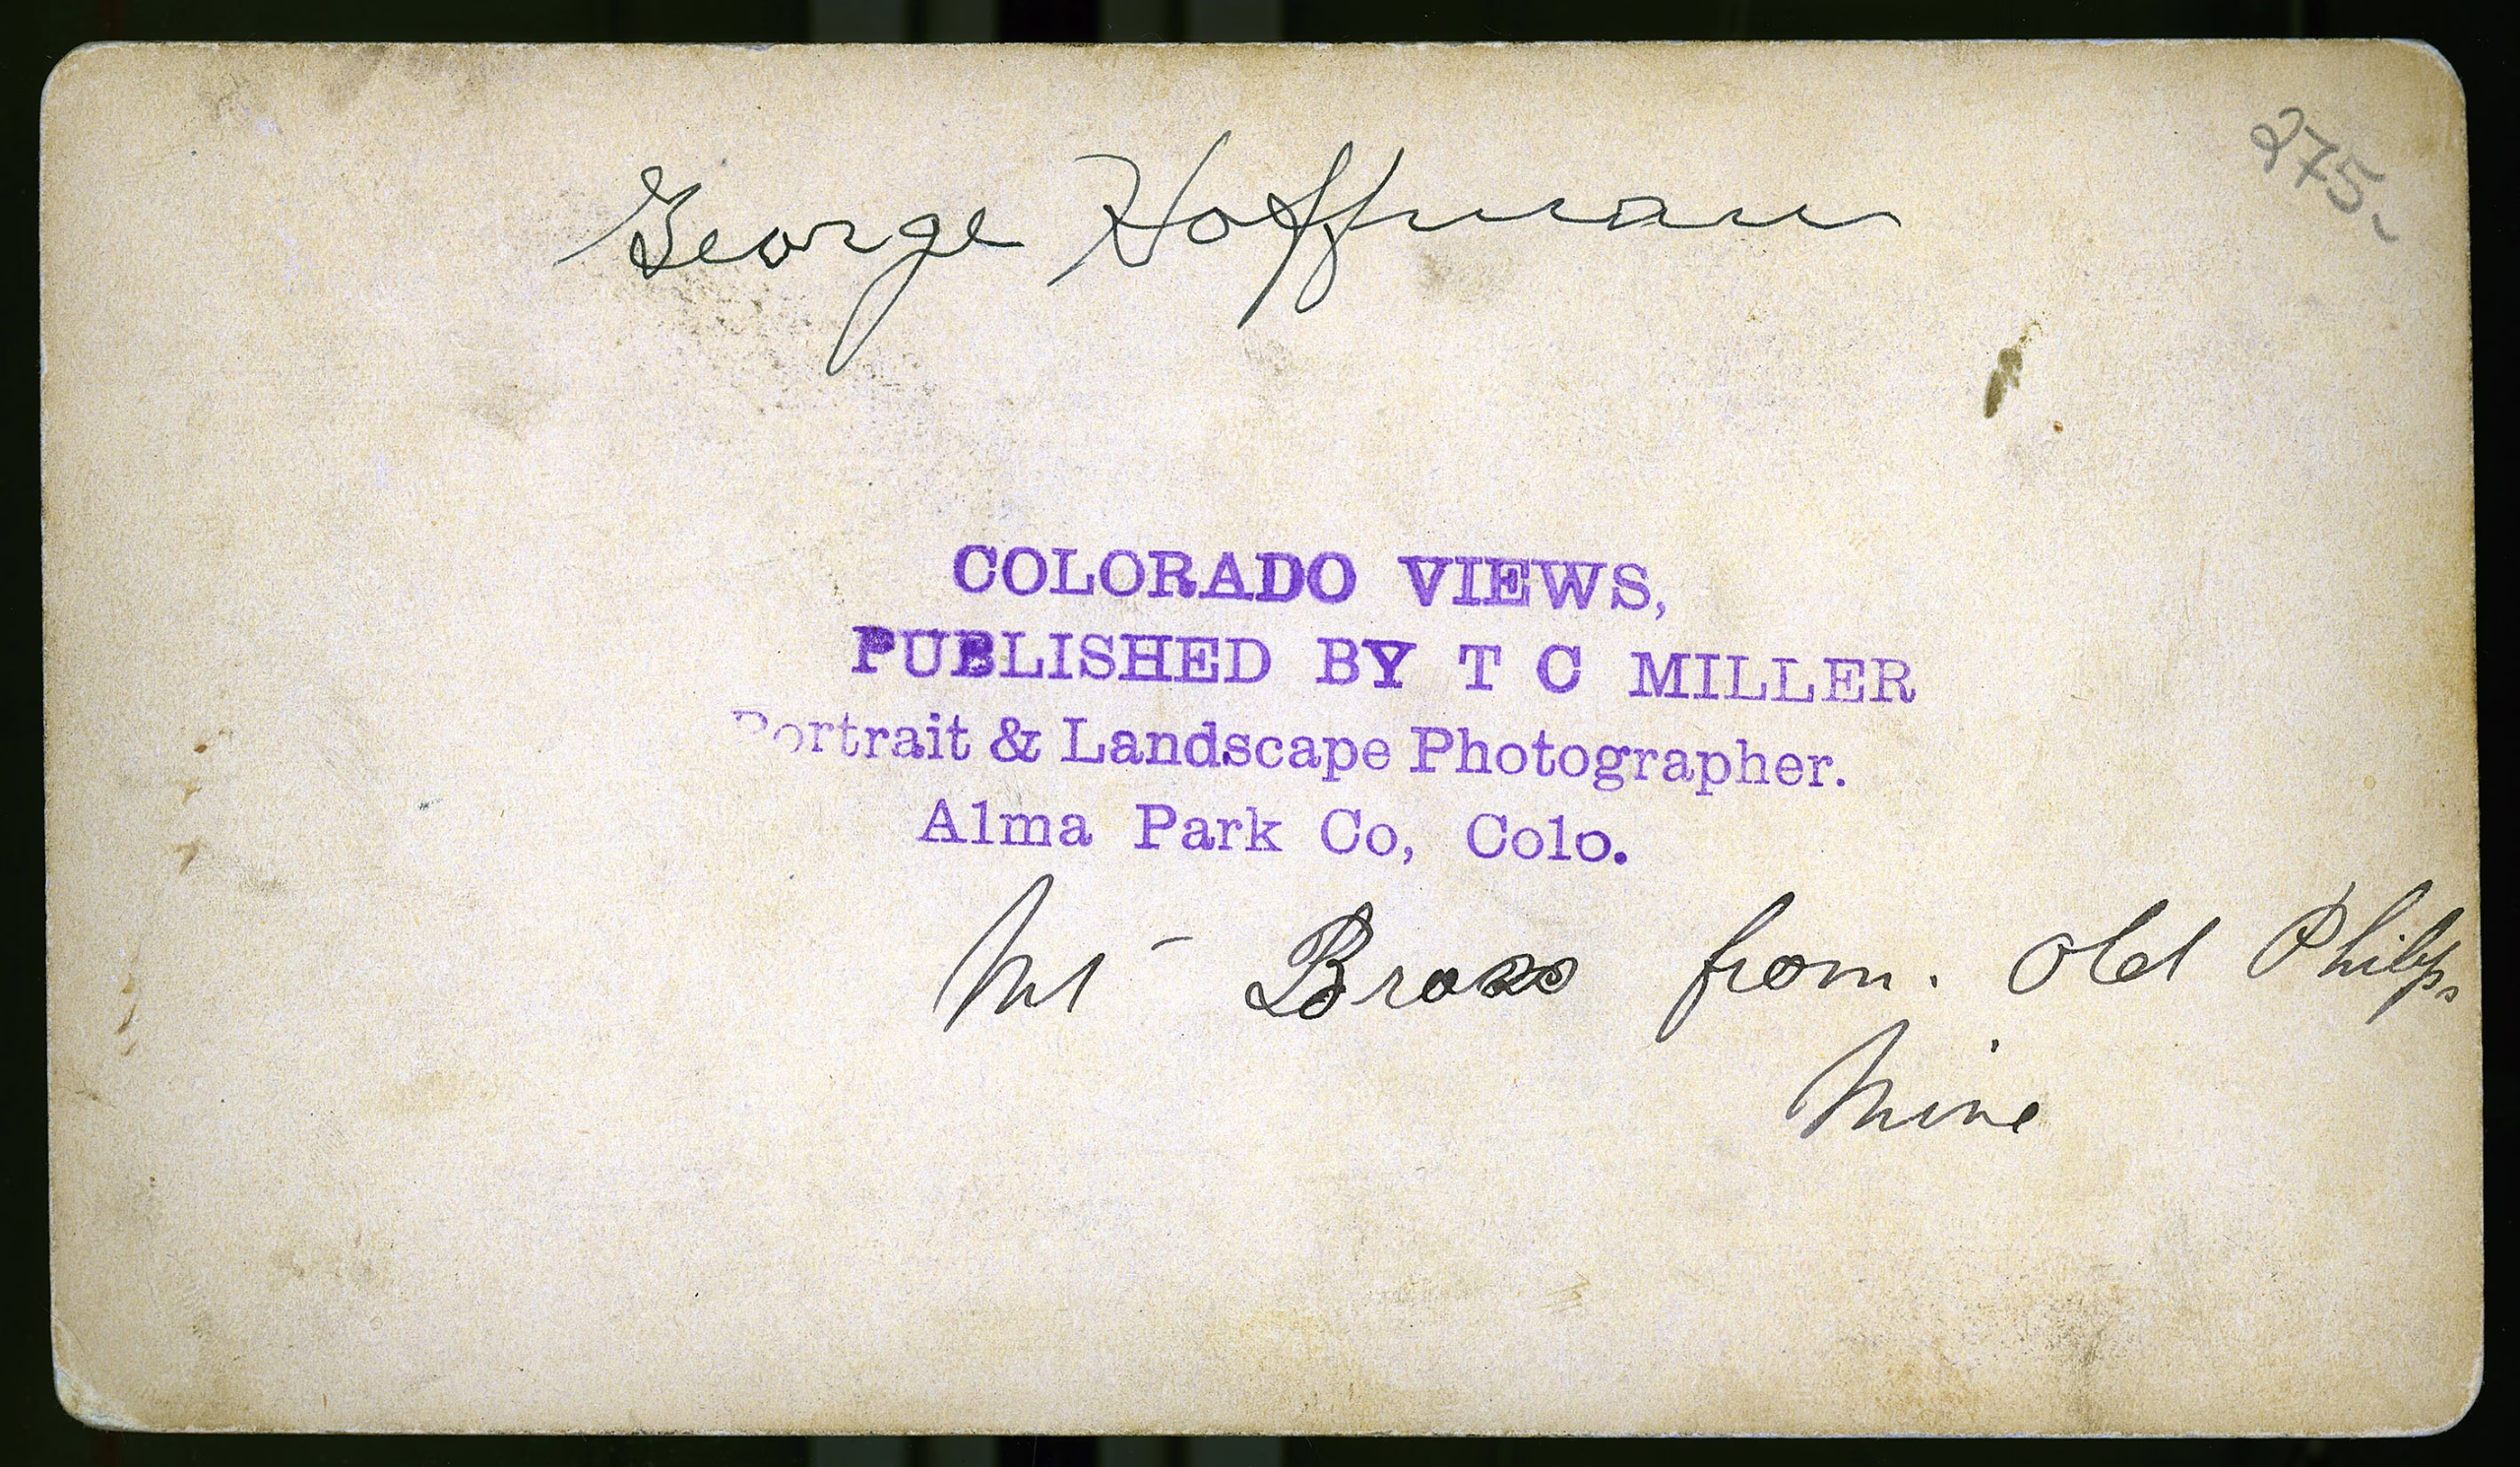 George Hoffman
275-
COLORADO VIEWS,
PUBLISHED BY T C MILLER
Portrait & Landscape Photographer.
Alma Park Co, Colo.
Mt Bross from. Old Philps
Mine